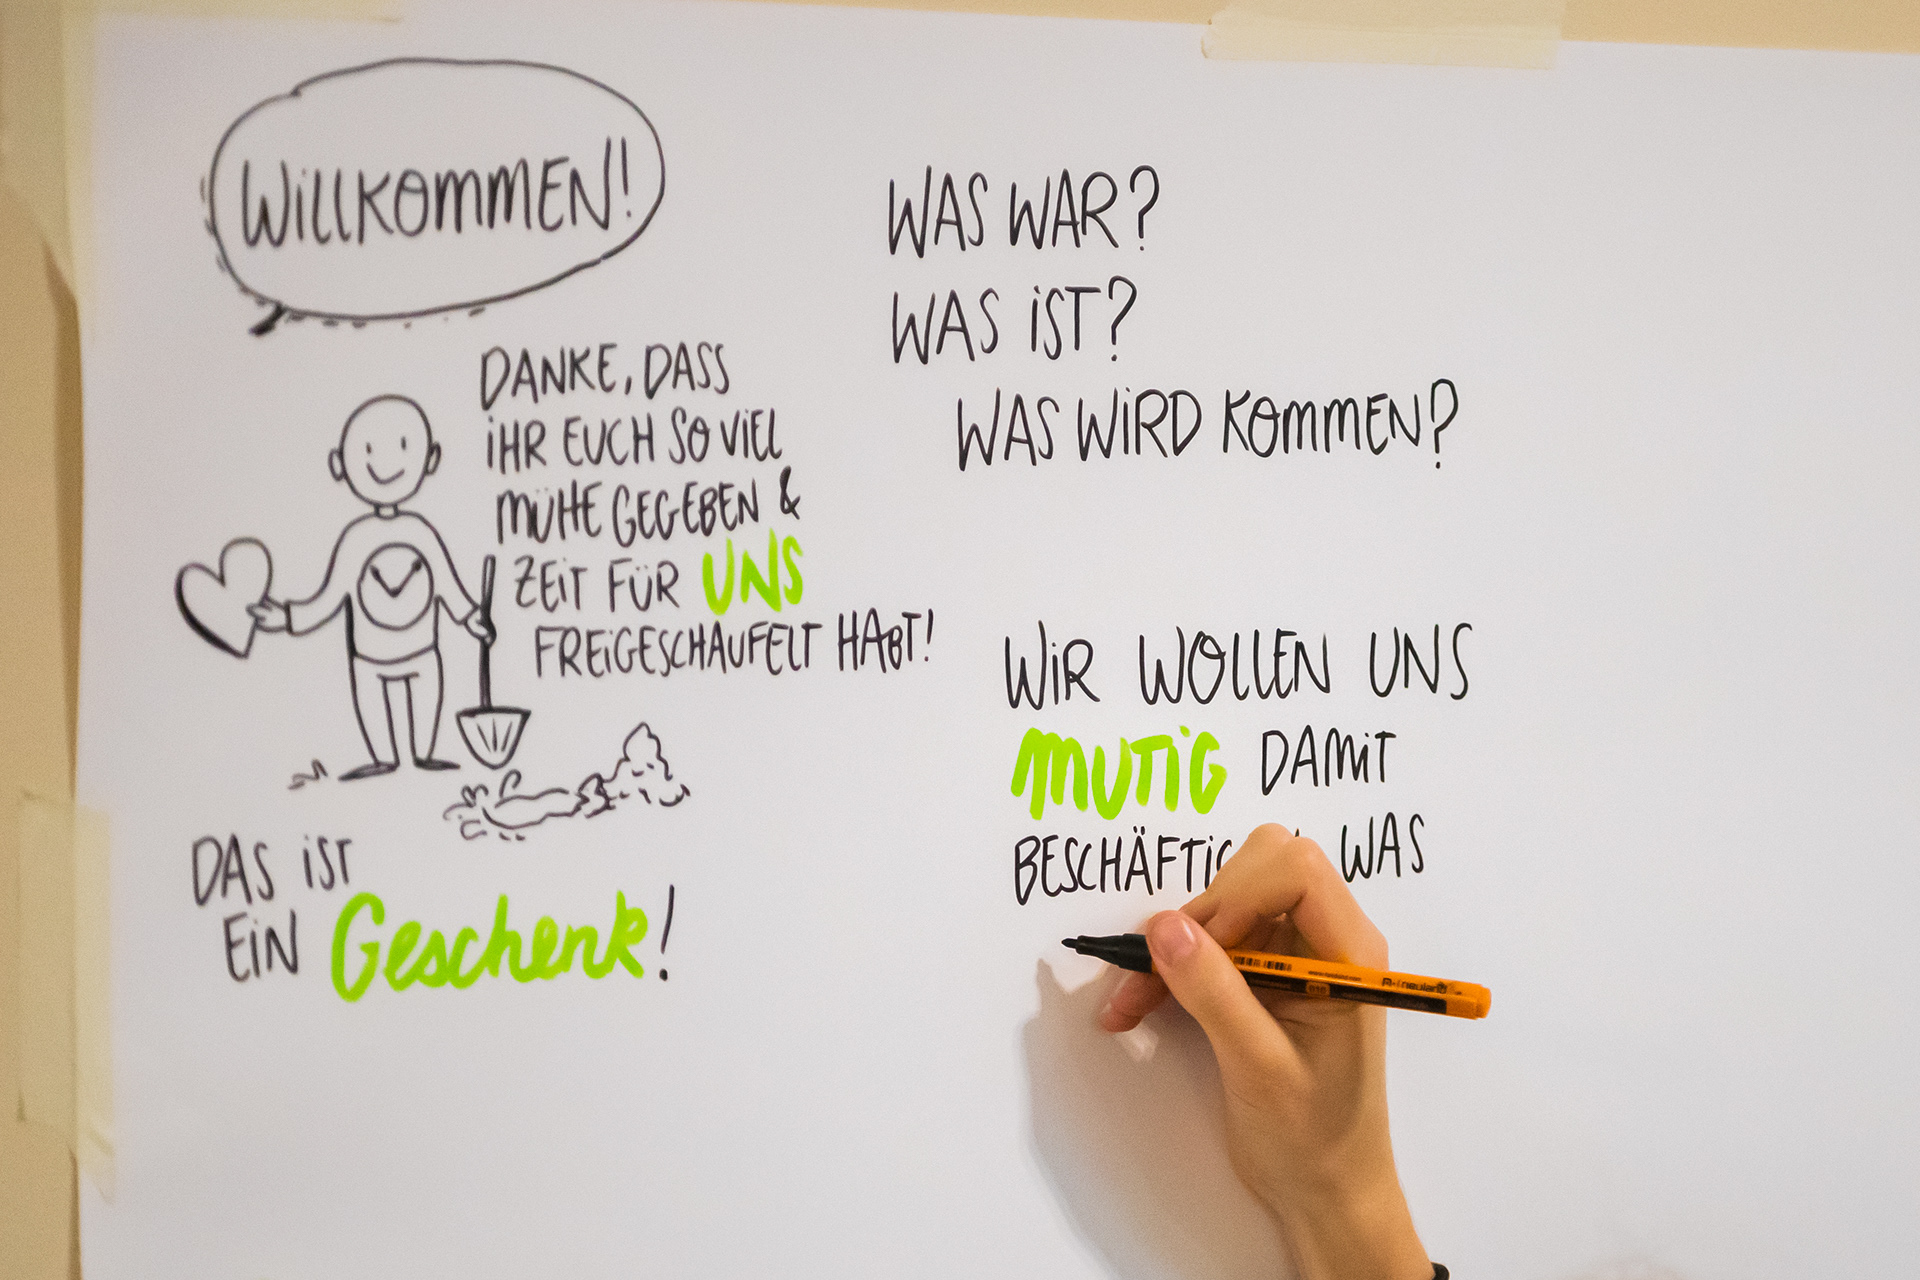 WILLKOMMEN!
DANKE, DASS
IHR EUCH SO VIEL
MÜHE GEGEBEN &
ZEIT FÜR UNS
FREIGESCHAUFELT HABT!
DAS IST
EIN Geschenk!
WAS WAR?
WAS IST?
WAS WIRD KOMMEN?
WIR WOLLEN UNS
MUTIG DAMIT
WAS
neuland